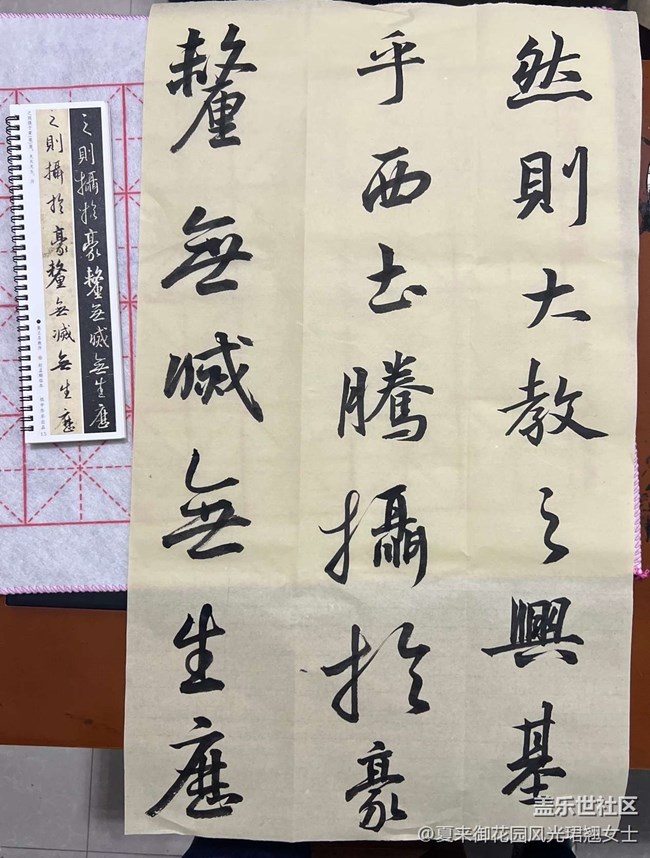 然則大教之興基
乎西土騰攝於豪
釐無滅無生歷
之則攝於豪釐無滅無生歷
之則攝於豪釐無滅無生歷
盖乐世社区
@夏来御花园风光珺翘女士